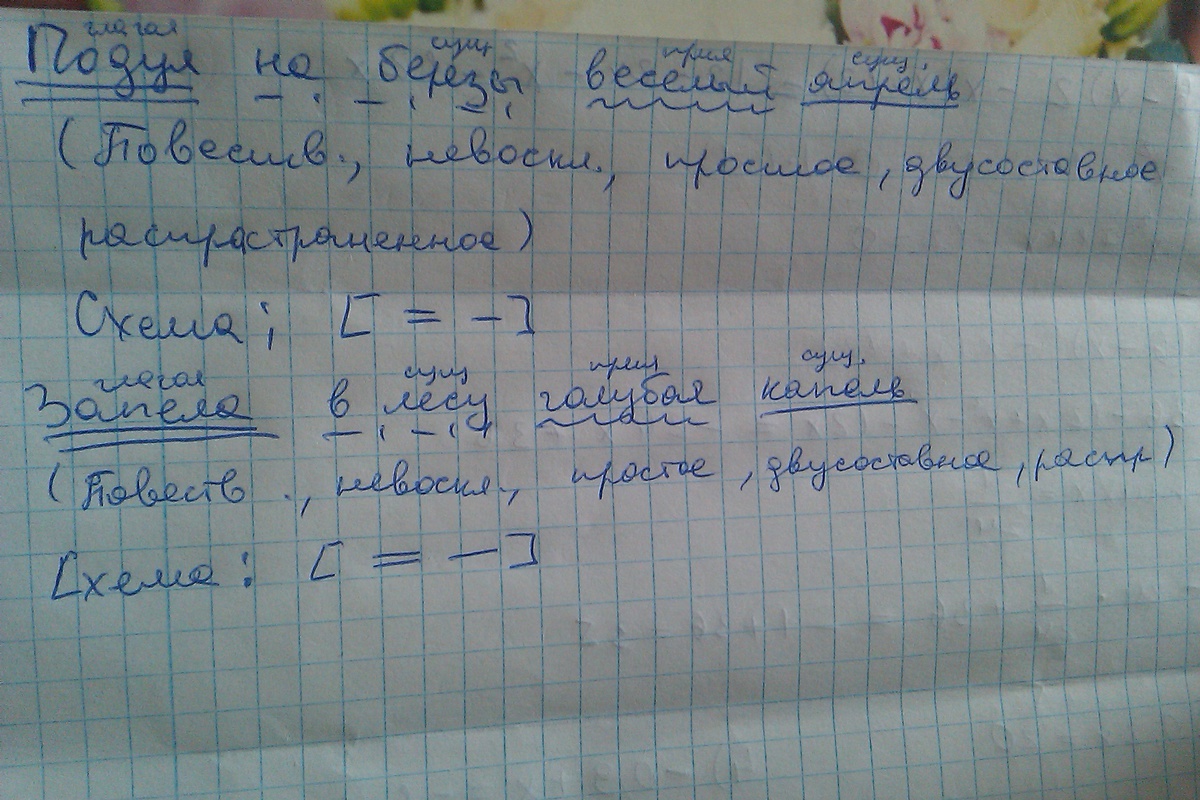 глагол сущ прил сущ.
Подул на березы веселый апрель
(Повеств., невоскл., простое, двусоставное
распрастраненное)
Схема; [ = - ]
глагол сущ прил сущ.
Запела в лесу голубая капель
(Повеств., невоскл., простое, двусоставное, распр)
Схема: [ = — ]